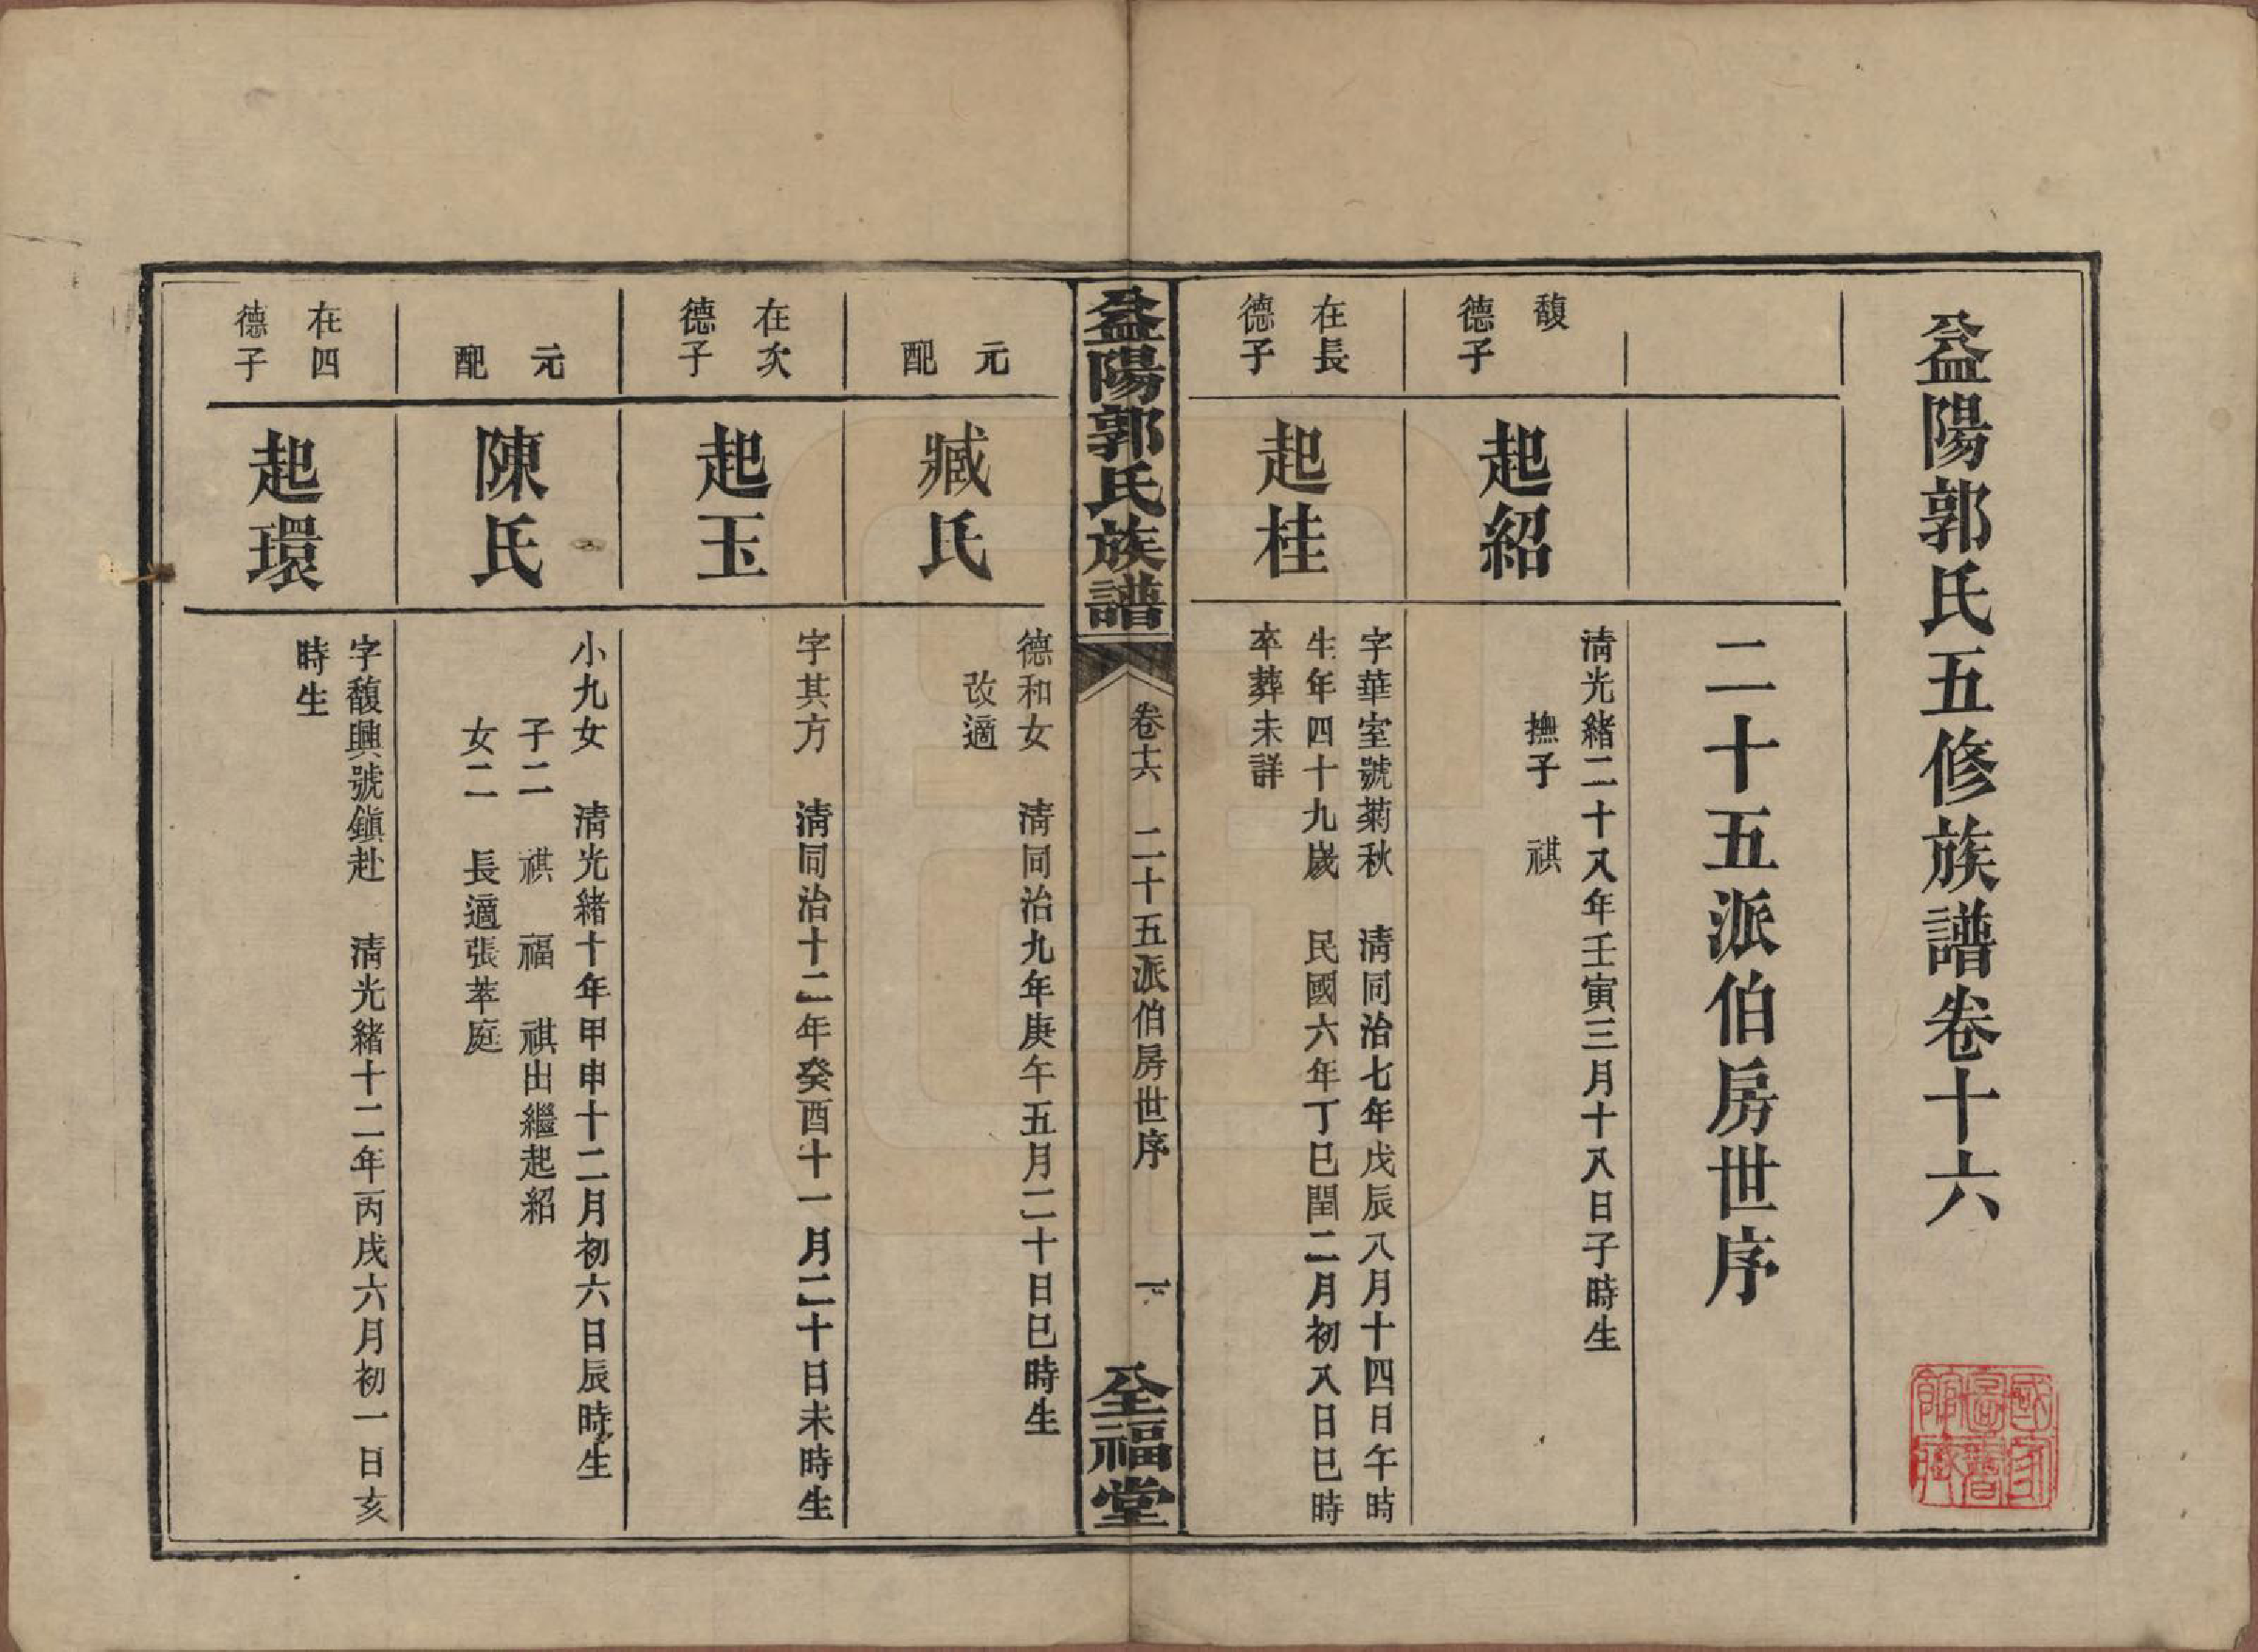 益陽郭氏五修族譜卷十六
二十五派伯房世序
馥
德子
起紹
清光緒二十八年壬寅三月十八日子時生
撫子 祺
在長
德子
起桂
字華室號菊秋 清同治七年戊辰八月十四日午時
生年四十九歲 民國六年丁巳閏二月初八日巳時
卒葬未詳
益陽郭氏族譜
卷十六 二十五派伯房世序 一
全福堂
元
配
臧氏
德和女 清同治九年庚午五月二十日巳時生
改適
在次
德子
起玉
字其方 清同治十二年癸酉十一月二十日未時生
元
配
陳氏
小九女 清光緒十年甲申十二月初六日辰時生
子二 祺 福 祺出繼起紹
女二 長適張萃庭
在四
德子
起環
字馥興號鎮赴 清光緒十二年丙戌六月初一日亥
時生
國家
圖書
館藏